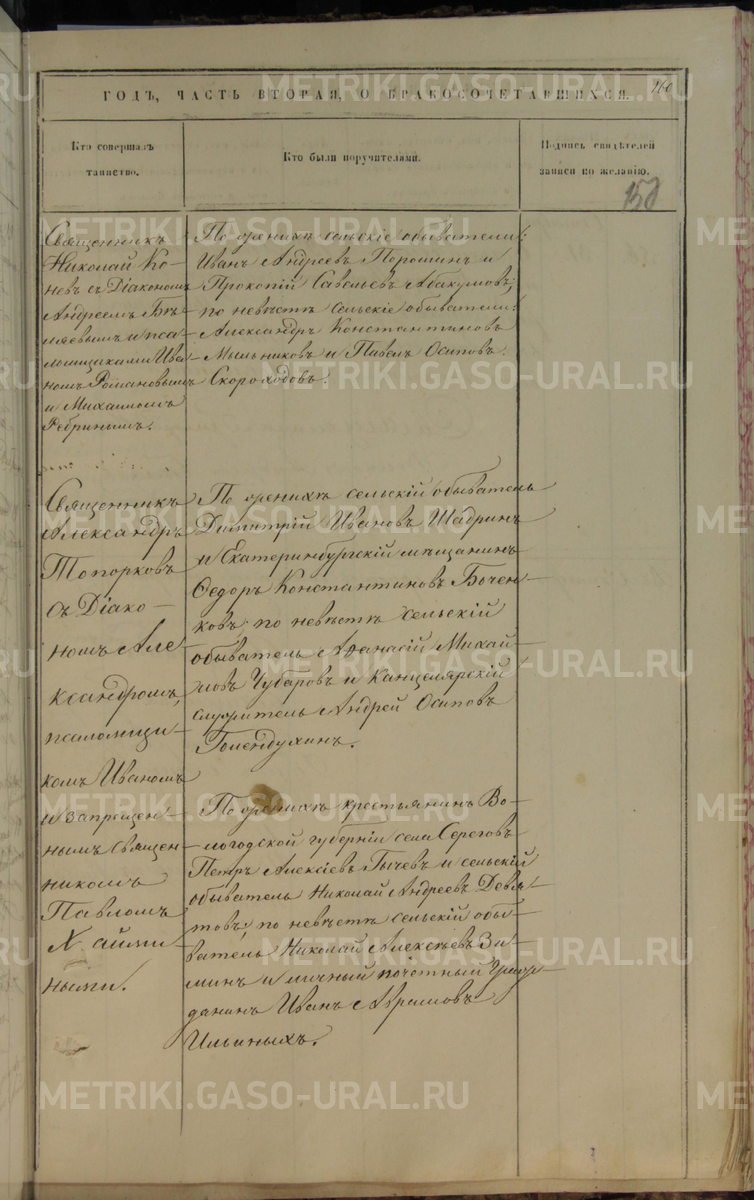 160
ГОДЪ, ЧАСТЬ ВТОРАЯ, О БРАКОСОЧЕТАВШИХСЯ.
Кто совершалъ
таинство.
Кто были поручителями.
Подпись свидѣтелей
записи по желанію.
158
Священникъ
Николай Ко-
невъ съ Діакономъ
Андреемъ Бѣ-
ляевымъ и пса-
ломщиками Ива-
номъ Романовымъ
и Михаиломъ
Ребринымъ.
По женихѣ сельскіе обыватели:
Иванъ Андреевъ Порошинъ и
Прокопій Савельевъ Абакумовъ;
по невѣстѣ сельскіе обыватели:
Александръ Константиновъ
Мыльниковъ и Павелъ Осиповъ
Скороходовъ.
Священникъ
Александръ
Топорковъ
съ Діако-
номъ Але-
ксандромъ,
псаломщи-
комъ Иваномъ
и запрещен-
нымъ священ-
никомъ
Павломъ
Хайми-
ными.
По женихѣ сельскій обыватель
Димитрій Ивановъ Шадринъ
и Екатеринбургскій мѣщанинъ
Ѳедоръ Константиновъ Бочен-
ковъ; по невѣстѣ сельскій
обыватель Аѳанасій Михай-
ловъ Чубаровъ и Канцелярскій
служитель Андрей Осиповъ
Голендухинъ.
По женихѣ крестьянинъ Во-
логодской губерніи села Сереговъ
Петръ Алексіевъ Гычевъ и сельскій
обыватель Николай Андреевъ Девя-
товъ; по невѣстѣ сельскій обы-
ватель Николай Алексѣевъ Зи-
минъ и личный почетный Граж-
данинъ Иванъ Аврамовъ
Ильиныхъ.
METRIKI.GASO-URAL.RU